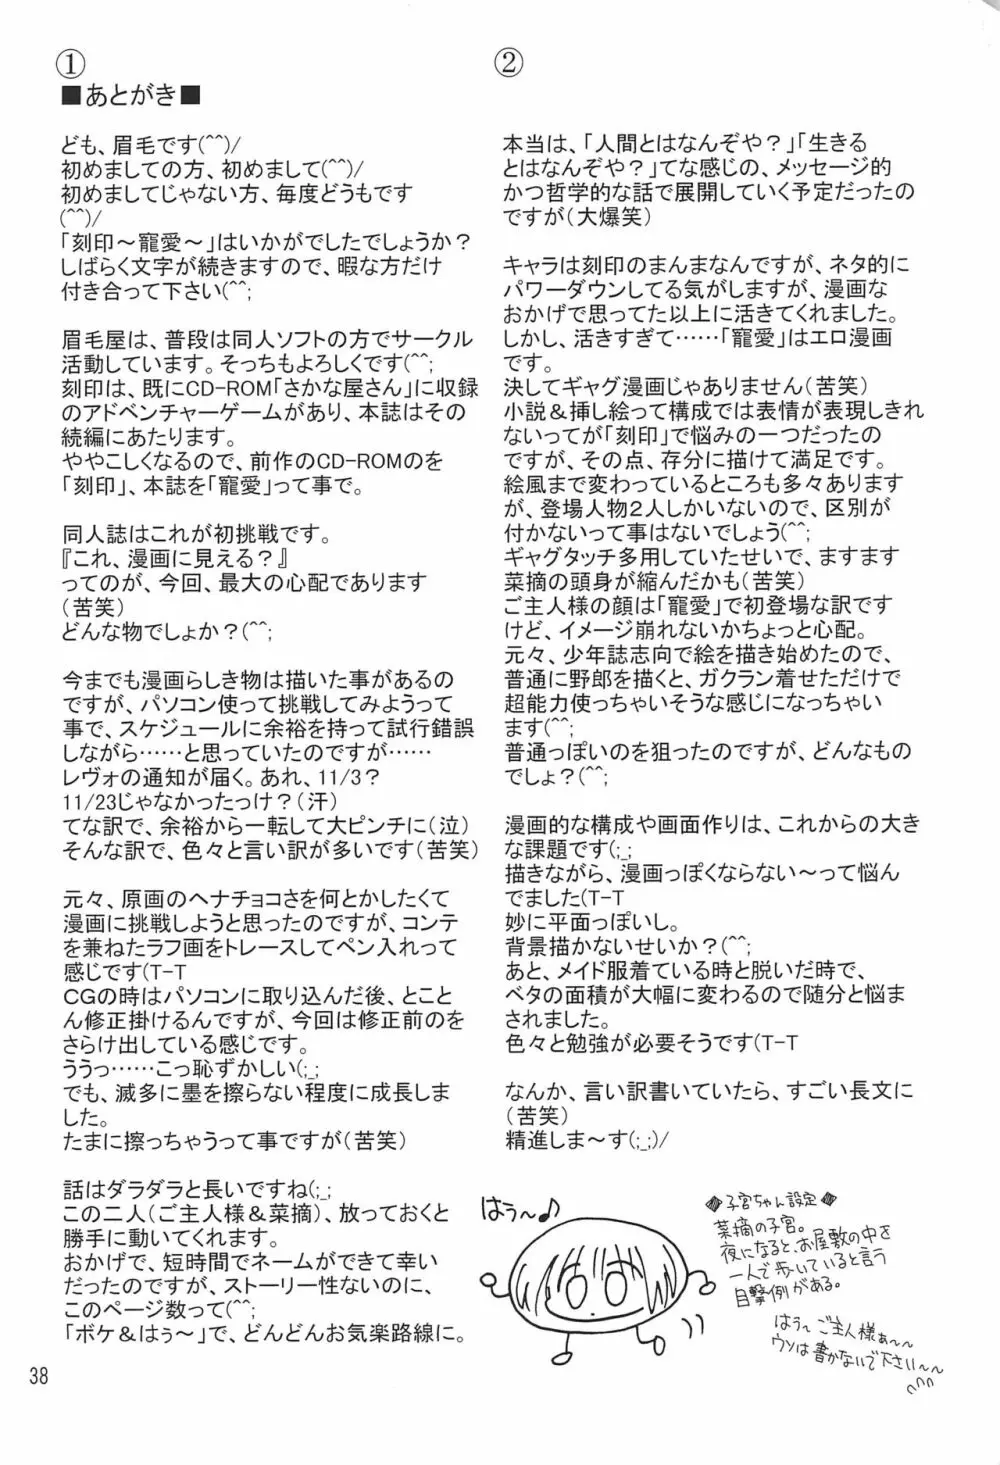 ①
■あとがき■
ども、眉毛です(^^)/
初めましての方、初めまして(^^)/
初めましてじゃない方、毎度どうもです
(^^)/
「刻印～寵愛～」はいかがでしたでしょうか？
しばらく文字が続きますので、暇な方だけ
付き合って下さい(^^;
眉毛屋は、普段は同人ソフトの方でサークル
活動しています。そっちもよろしくです(^^;
刻印は、既にCD-ROM「さかな屋さん」に収録
のアドベンチャーゲームがあり、本誌はその
続編にあたります。
ややこしくなるので、前作のCD-ROMのを
「刻印」、本誌を「寵愛」って事で。
同人誌はこれが初挑戦です。
『これ、漫画に見える？』
ってのが、今回、最大の心配であります
(苦笑)
どんな物でしょか？(^^;
今までも漫画らしき物は描いた事があるの
ですが、パソコン使って挑戦してみようって
事で、スケジュールに余裕を持って試行錯誤
しながら……と思っていたのですが……
レヴォの通知が届く。あれ、11/3？
11/23じゃなかったっけ？(汗)
てな訳で、余裕から一転して大ピンチに(泣)
そんな訳で、色々と言い訳が多いです(苦笑)
元々、原画のヘナチョコさを何とかしたくて
漫画に挑戦しようと思ったのですが、コンテ
を兼ねたラフ画をトレースしてペン入れって
感じです(T-T
CGの時はパソコンに取り込んだ後、とこと
ん修正掛けるんですが、今回は修正前のを
さらけ出している感じです。
ううっ……こっ恥ずかしい(;_;
でも、滅多に墨を擦らない程度に成長しま
した。
たまに擦っちゃうって事ですが(苦笑)
話はダラダラと長いですね(;_;
この二人(ご主人様＆菜摘)、放っておくと
勝手に動いてくれます。
おかげで、短時間でネームができて幸い
だったのですが、ストーリー性ないのに、
このページ数って(^^;
「ボケ＆はぅ～」で、どんどんお気楽路線に。
38
②
本当は、「人間とはなんぞや？」「生きる
とはなんぞや？」てな感じの、メッセージ的
かつ哲学的な話で展開していく予定だったの
ですが(大爆笑)
キャラは刻印のまんまなんですが、ネタ的に
パワーダウンしてる気がしますが、漫画な
おかげで思ってた以上に活きてくれました。
しかし、活きすぎて……「寵愛」はエロ漫画
です。
決してギャグ漫画じゃありません(苦笑)
小説＆挿し絵って構成では表情が表現しきれ
ないってが「刻印」で悩みの一つだったの
ですが、その点、存分に描けて満足です。
絵風まで変わっているところも多々あります
が、登場人物2人しかいないので、区別が
付かないって事はないでしょう(^^;
ギャグタッチ多用していたせいで、ますます
菜摘の頭身が縮んだかも(苦笑)
ご主人様の顔は「寵愛」で初登場な訳です
けど、イメージ崩れないかちょっと心配。
元々、少年誌志向で絵を描き始めたので、
普通に野郎を描くと、ガクラン着せただけで
超能力使っちゃいそうな感じになっちゃい
ます(^^;
普通っぽいのを狙ったのですが、どんなもの
でしょ？(^^;
漫画的な構成や画面作りは、これからの大き
な課題です(;_;
描きながら、漫画っぽくならない～って悩ん
でました(T-T
妙に平面っぽいし。
背景描かないせいか？(^^;
あと、メイド服着ている時と脱いだ時で、
ベタの面積が大幅に変わるので随分と悩ま
されました。
色々と勉強が必要そうです(T-T
なんか、言い訳書いていたら、すごい長文に
(苦笑)
精進しま～す(;_;)/
はぅ～♪
◆子宮ちゃん設定◆
菜摘の子宮。
夜になると、お屋敷の中を
一人で歩いていると言う
目撃例がある。
はぅ～ご主人様ぁ～～
ウソは書かないで下さい～～